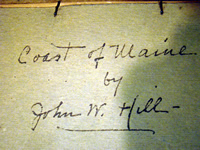 Coast of Maine
by
John W. Hill